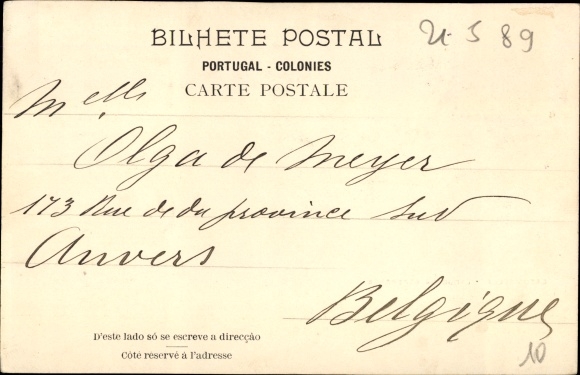 BILHETE POSTAL
PORTUGAL - COLONIES
CARTE POSTALE
Melle
Olga de Meyer
173 Rue de da province Sud
Anvers
Belgique
D'este lado só se escreve a direcção
Côté réservé á l'adresse
10